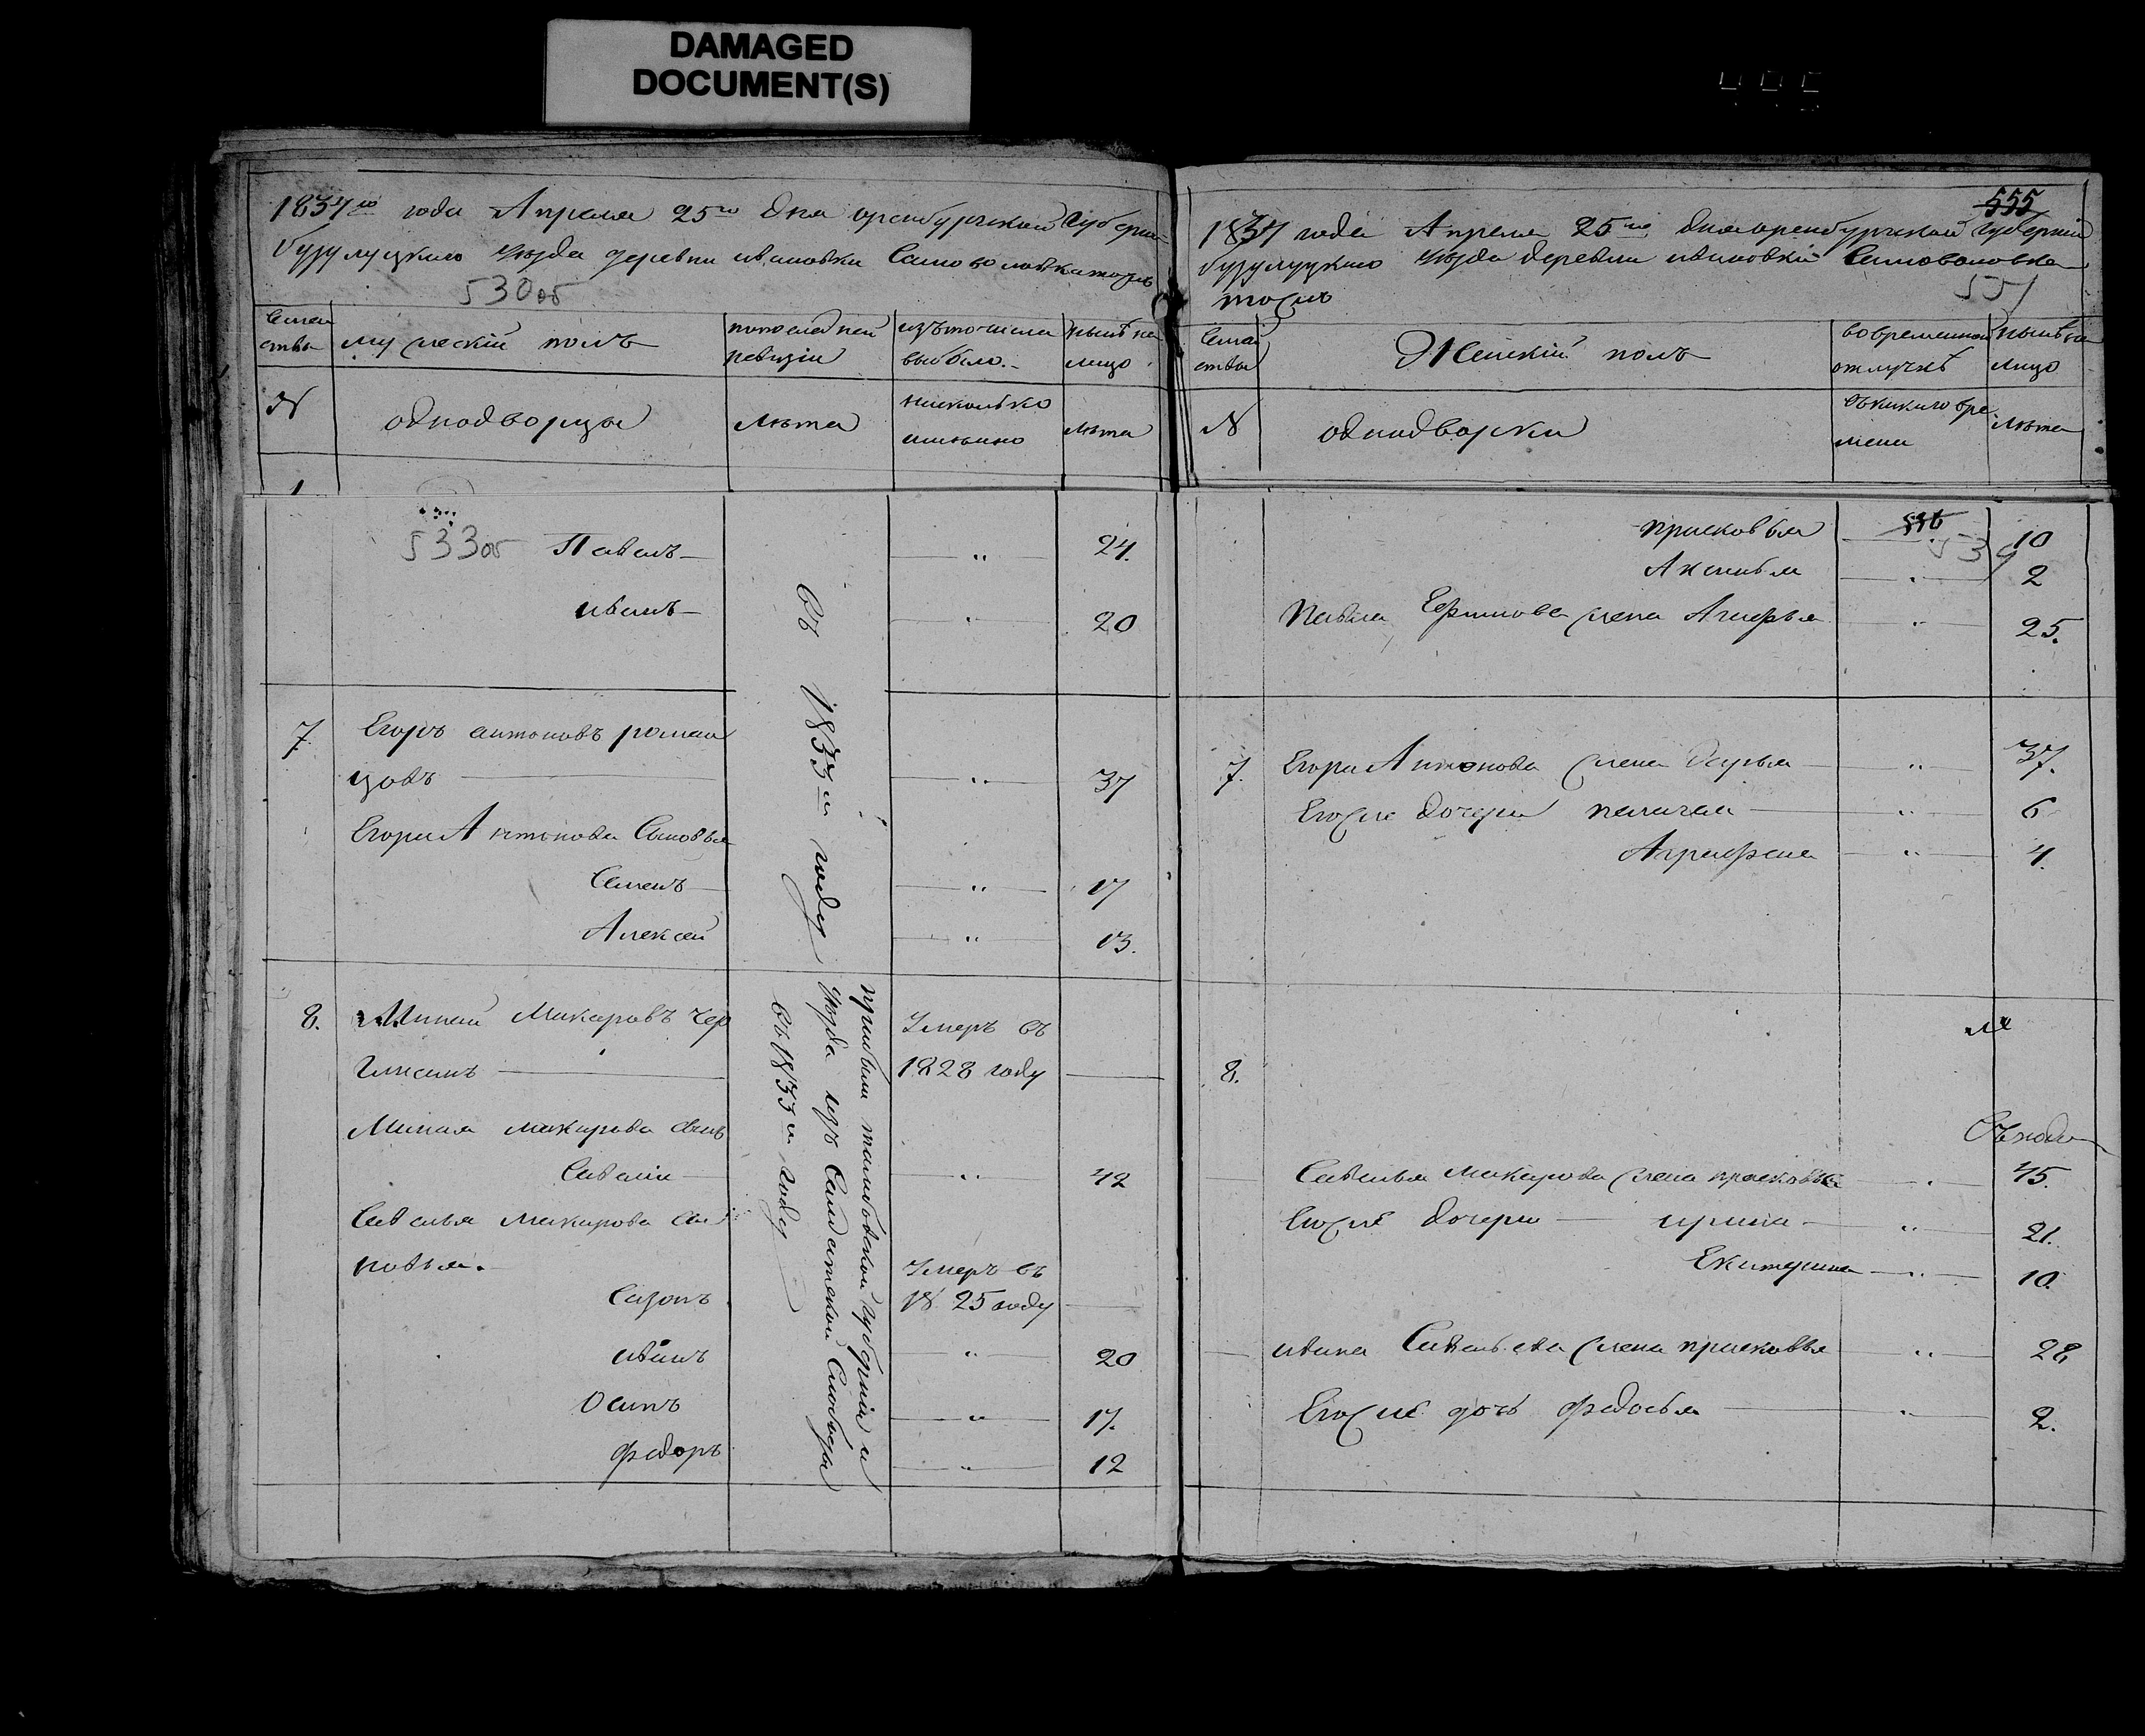 DAMAGED
DOCUMENT(S)
1834го года Апреля 25го дня оренбургской Губерніи
бузулуцкаго уезда деревни ивановки Самоволовка тожъ
530об
Семей
ства
мужескій полъ
попоследней
ревизіи
изътогочисла
выбыло.
ныне на
лицо
N
однодворцы
лѣта
лѣта
1
533об Павелъ — „ — 24.
иванъ — „ — 20
въ 1833м году
7. Егоръ антоновъ роман
цовъ — „ — 37
Егора Антонова Сыновья
Семенъ — „ — 17
Алексей — „ — 13.
8. Минай Макаровъ Чер Умеръ въ
1828 году
Миная макарова
Савелій — „ — 42
Савелья макарова сы
новья.
Умеръ въ
Сазонъ 1825 году
иванъ — „ — 20
Осипъ — „ — 17.
Федоръ — „ — 12
прибыли тамбовской губерніи и
уезда изъ Салдатской Слободы
въ 1833м году
555
1834 года Апреля 25го дня оренбургской губерніи
бузулуцкаго уезда деревни ивановки Самоволовка
тожъ
531
Семей
ства
Женскій полъ
вовременной
отлучкѣ
ныне на
лицо
N
однодворки
съкакаго вре
мени
лѣта
556
534
прасковья 10
Аксинья — „ — 2
Павла Ефимова жена Агафья — „ — 25.
7. Егора Антонова жена Дарья — „ — 37.
Егоже дочери пелагея — „ — 6
Аграфена — „ — 4.
8.
Савелья Макарова жена прасковья — „ — 45.
Егоже дочери — ирина — „ — 21.
Екатерина — „ — 10.
ивана Савельева жена прасковья — „ — 28
Егоже дочь федосья — „ — 2.